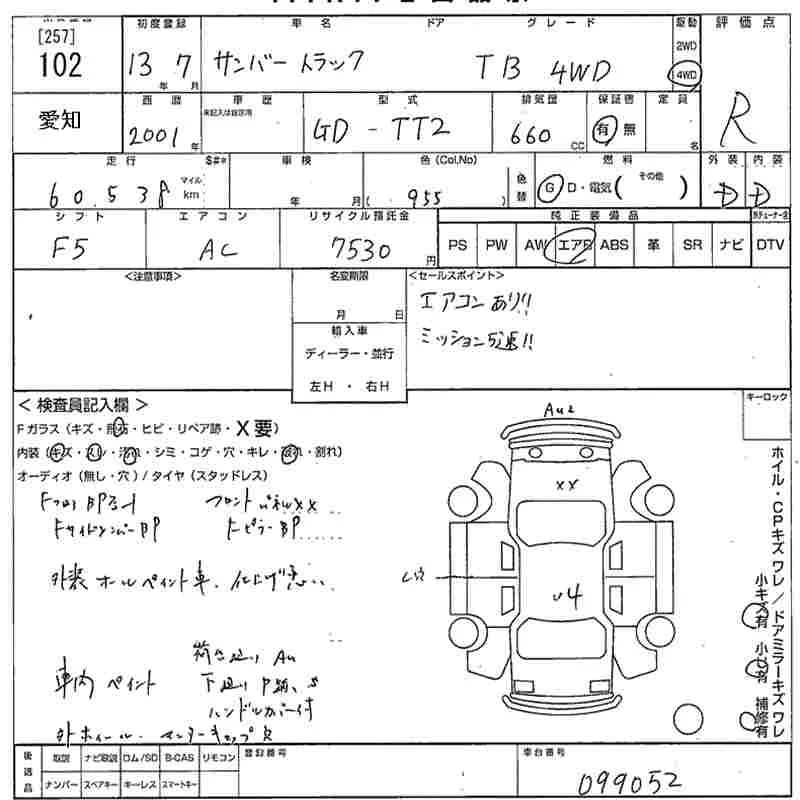 [257] 初度登録 車名 ドア グレード 駆動 評価点
102 13年 7月 サンバートラック TB 4WD 2WD
4WD
愛知 西暦 車歴 型式 排気量 保証書 定員 R
未記入は自家用
2001年 GD-TT2 660 CC 有 無 名
走行 $#* 車検 色(Col,No) 燃料 外装 内装
60,538 マイル km 年 月 ( 955 ) 色替 G D・電気( その他 ) D D
シフト エアコン リサイクル預託金 純正装備品
F5 AC 7530円 PS PW AW エアB ABS 革 SR ナビ DTV
<注意事項> 名変期限 <セールスポイント>
月 日 エアコンあり!!
輸入車 ミッション5速!!
ディーラー・並行
左H・右H
<検査員記入欄> キーロック
Fガラス(キズ・飛石・ヒビ・リペア跡・X要)
内装(キズ・スレ・汚れ・シミ・コゲ・穴・キレ・破れ・割れ)
オーディオ(無し・穴)/タイヤ(スタッドレス)
フロント
外装オールペイント車、仕上げ悪い
荷台 Au
車内ペイント
ハンドルカバー付
センターキャップ欠
AU2
XX
U4
ホイル・CPキズ ワレ/ドアミラーキズ ワレ
小キズ有 補修有
後送品 取説 ナビ取説 ロム/SD B-CAS リモコン 登録番号 車台番号
ナンバー スペアキー キーレス スマートキー 099052